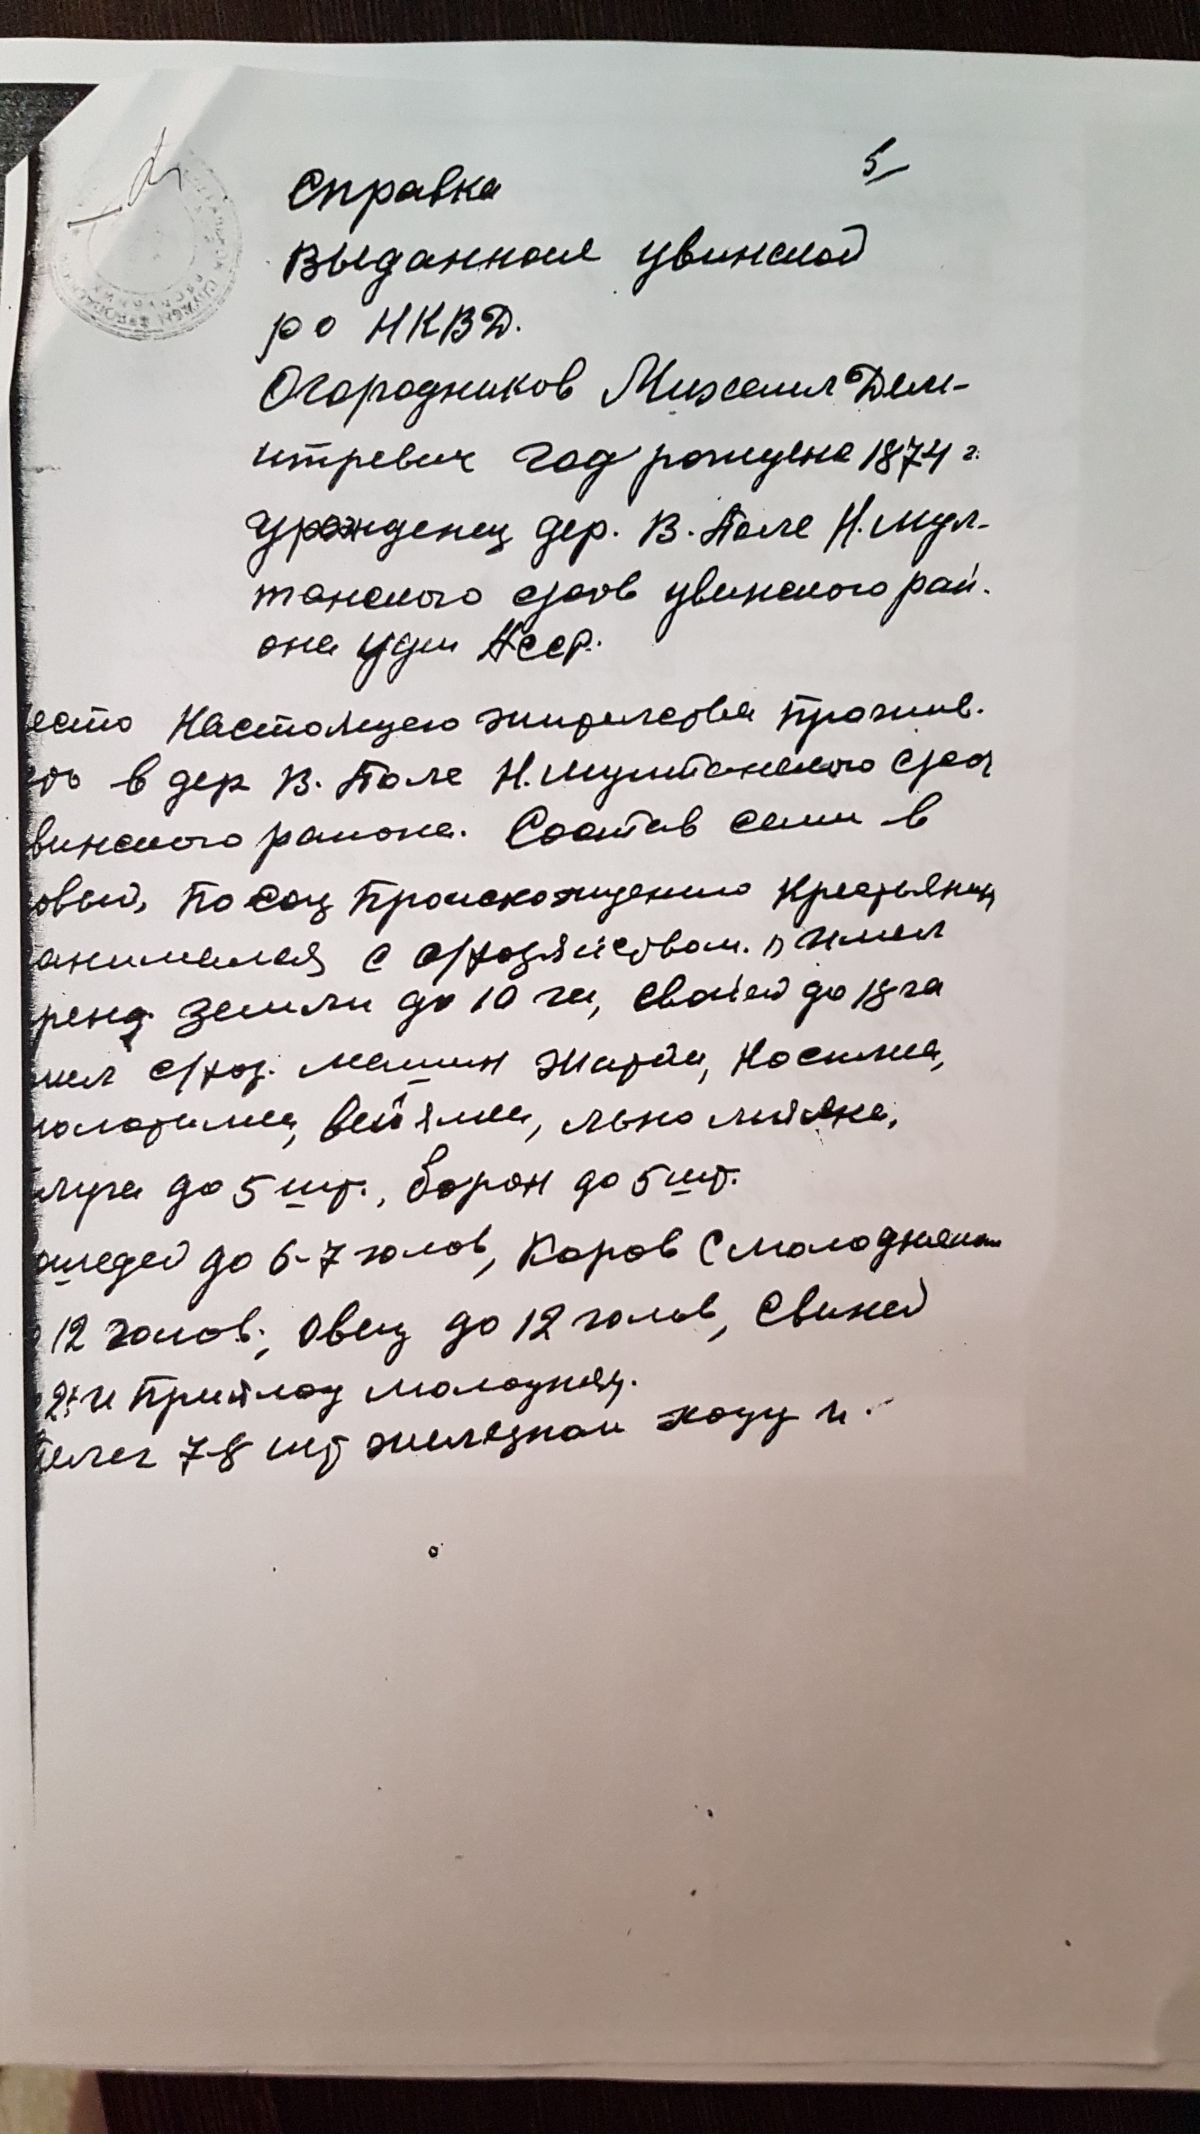 5
Справка
Выданная увинской
ро НКВД.
Огородников Михаил Дем-
итревич год рождена 1874 г.
урожденец дер. В. Поле Н. мул-
танского с/сов увинского рай.
она Удм АССР.
есто Настоящего жительства прожив.
в дер В. Поле Н. мултанского с/сов
винского района. Состав семи в
овый, По соц Происхождению Крестьянин
анимался с с/хозяйством. имел
ренд. земли до 10 га, своией до 18 га
мел с/хоз. машин жатка, Косилка,
молотилка, вейялка, льно мялка,
луга до 5 шт., борон до 5 шт.
ошедей до 6-7 голов, Коров с молодняком
12 голов, овец до 12 голов, Свиней
2: и Приплод молодняк.
телег 7-8 шт железном ходу и